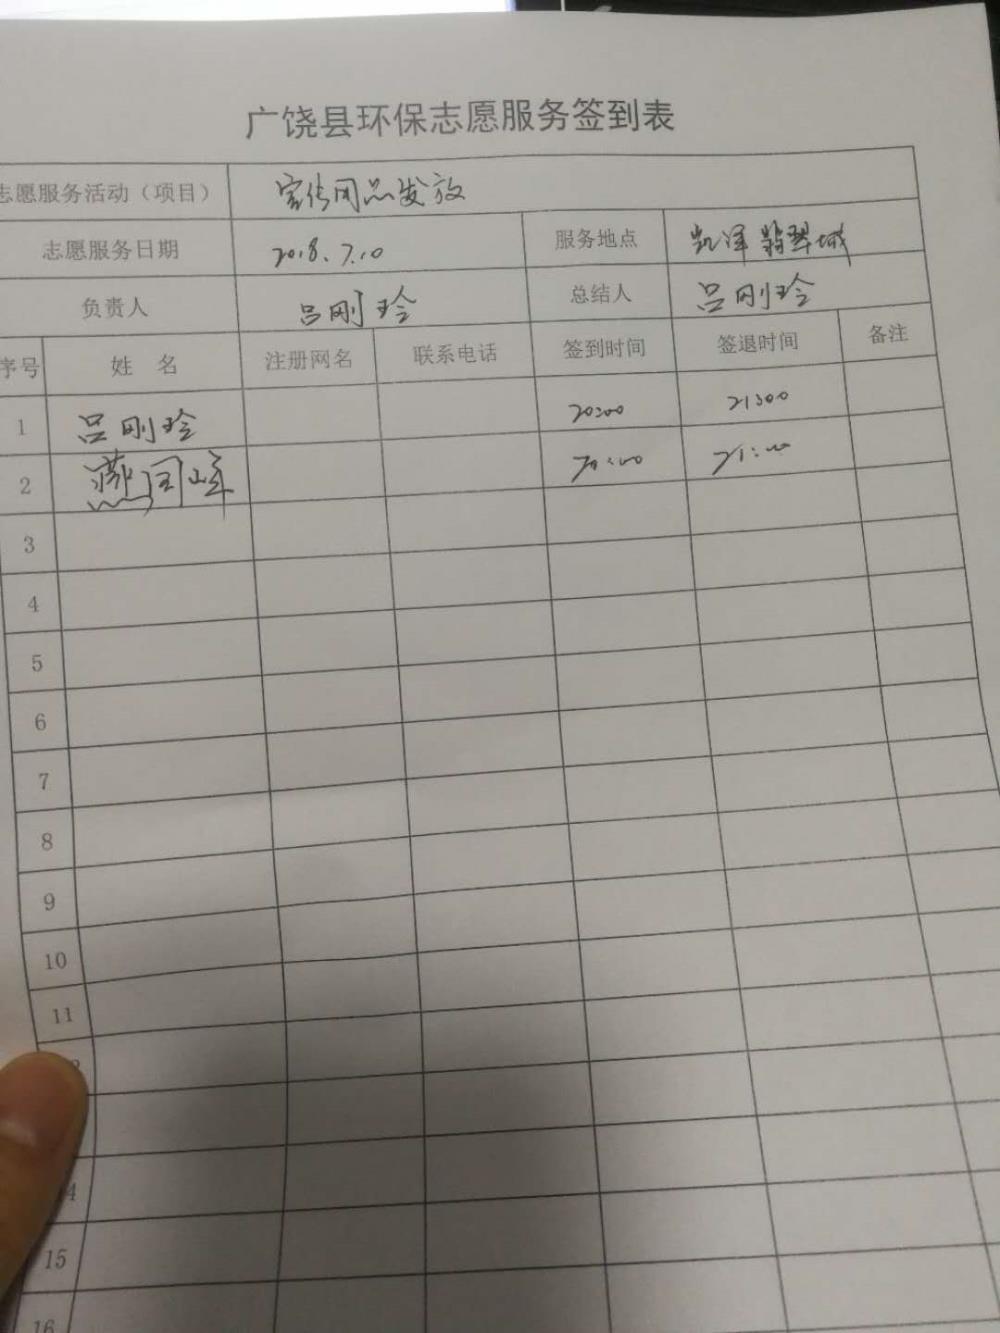 广饶县环保志愿服务签到表
志愿服务活动（项目） 宣传用品发放
志愿服务日期 2018.7.10 服务地点 凯泽翡翠城
负责人 吕刚玲 总结人 吕刚玲
序号 姓 名 注册网名 联系电话 签到时间 签退时间 备注
1 吕刚玲 20:00 21:00
2 燕国峰 20:00 21:00
3
4
5
6
7
8
9
10
11
15
16